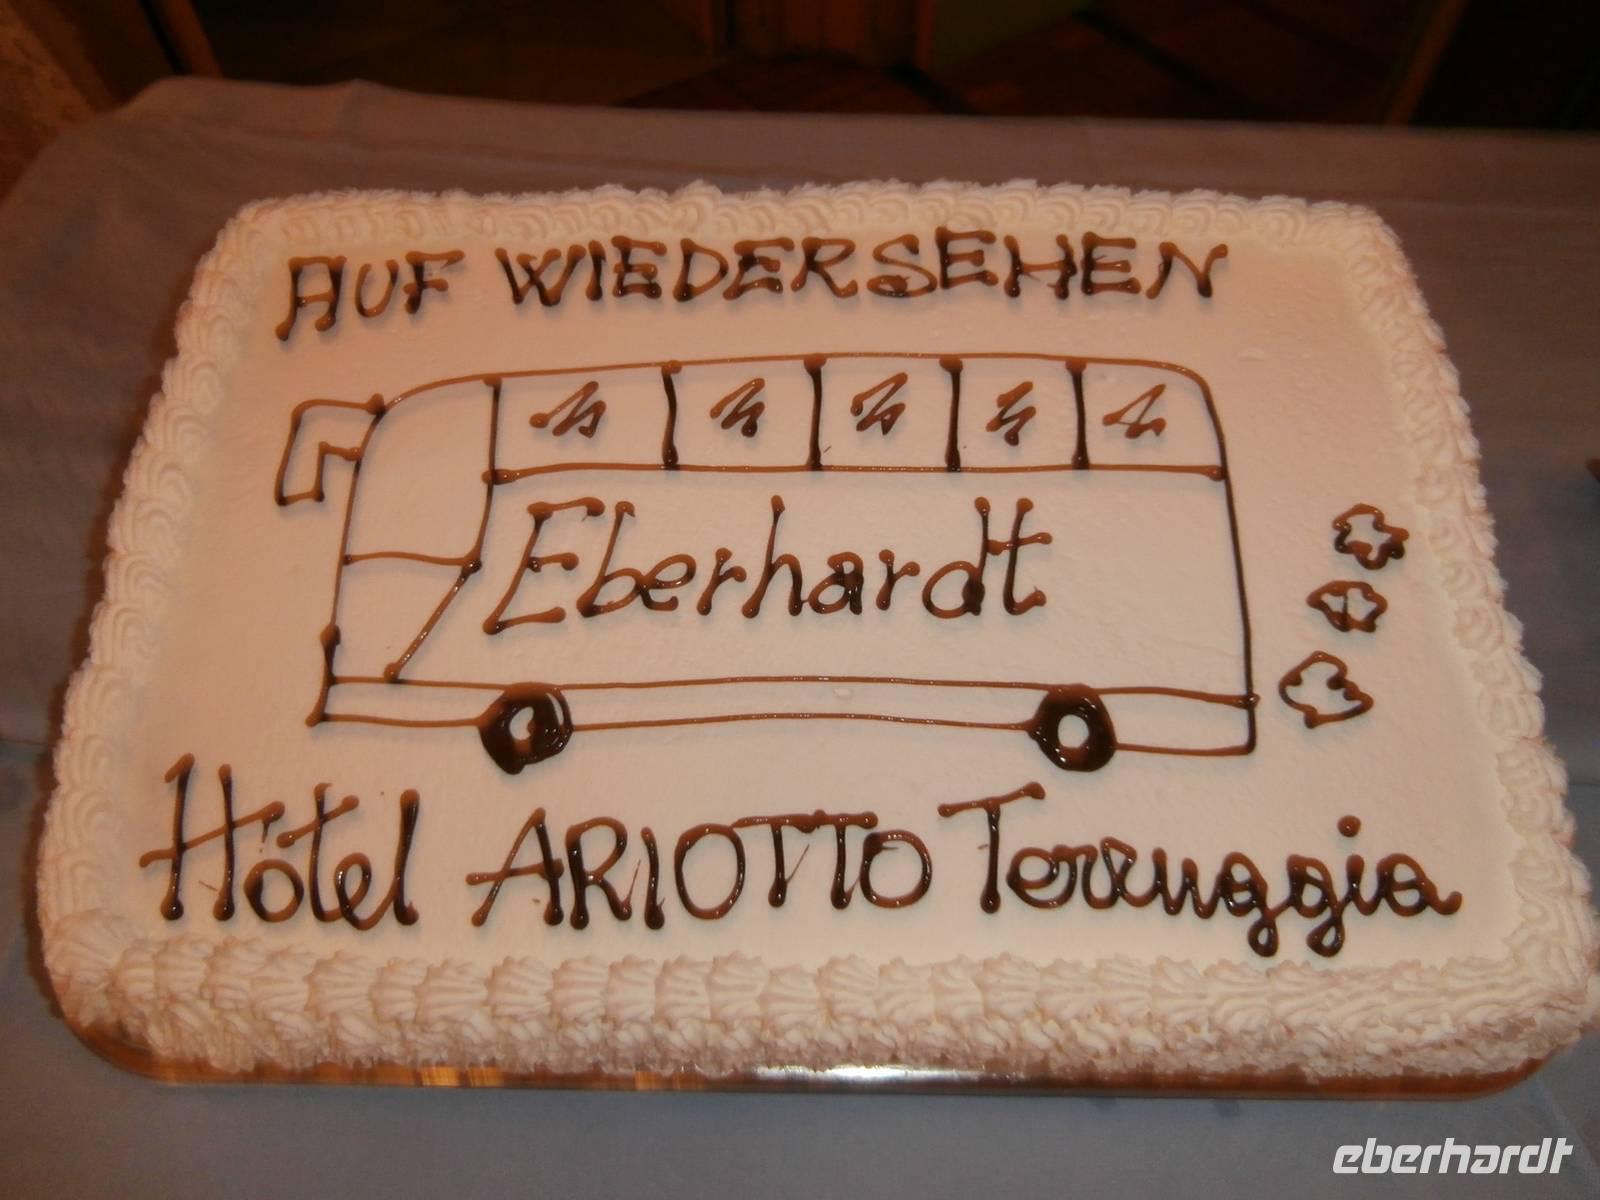 AUF WIEDERSEHEN
Eberhardt
Hotel ARIOTTO Terruggia
eberhardt